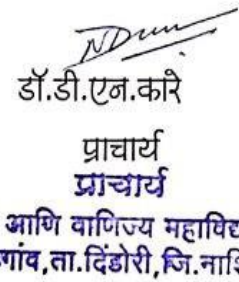 डॉ.डी.एन.कारे
प्राचार्य
प्राचार्य
आणि वाणिज्य
गांव,ता.दिंडोरी,जि.